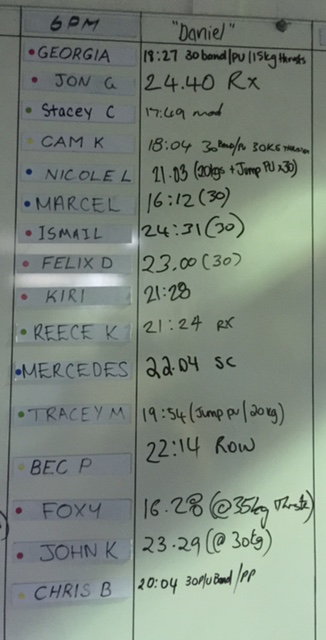 6PM "Daniel"
GEORGIA 18:27 30 band/PU/15kg thrusts
JON G 24.40 Rx
Stacey C 17:49 mod
CAM K 18:04 30 Band/PU 30KG
NICOLE L 21.03 (20kgs + Jump PU x30)
MARCEL 16:12 (30)
ISMAIL 24:31 (30)
FELIX D 23.00 (30)
KIRI 21:28
REECE K 21:24 RX
MERCEDES 22.04 SC
TRACEY M 19:54 (Jump PU/20kg)
BEC P 22:14 ROW
FOXY 16.28 (@35kg
JOHN K 23.29 (@ 30kg)
CHRIS B 20:04 30 P/U Band/PP